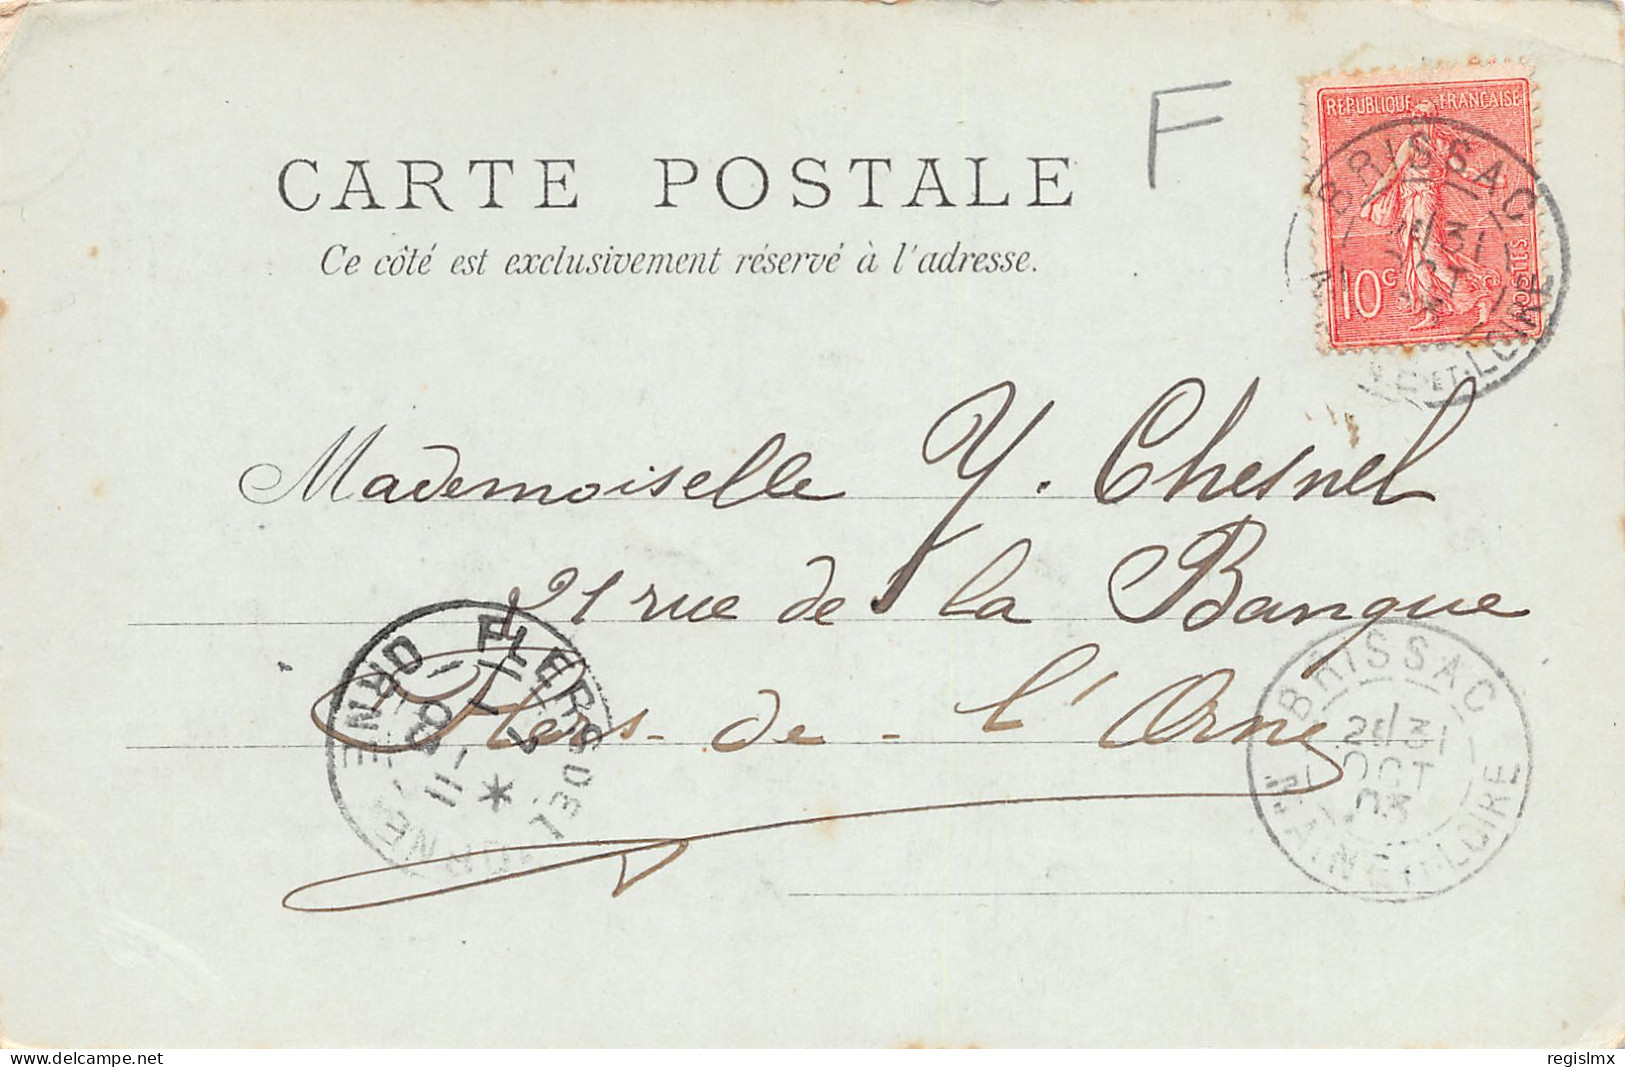 F
REPUBLIQUE FRANÇAISE
10c
POSTES
BRISSAC
31
OCT
MNE ET LOIRE
CARTE POSTALE
Ce côté est exclusivement réservé à l'adresse.
Mademoiselle Y. Chesnel
21 rue de la Banque
Flers-de-l'Orne
FLERS
ORNE
1E 30
1-11
03
BRISSAC
2E 31
OCT
03
MAINE ET LOIRE
delcampe.net
regislmx